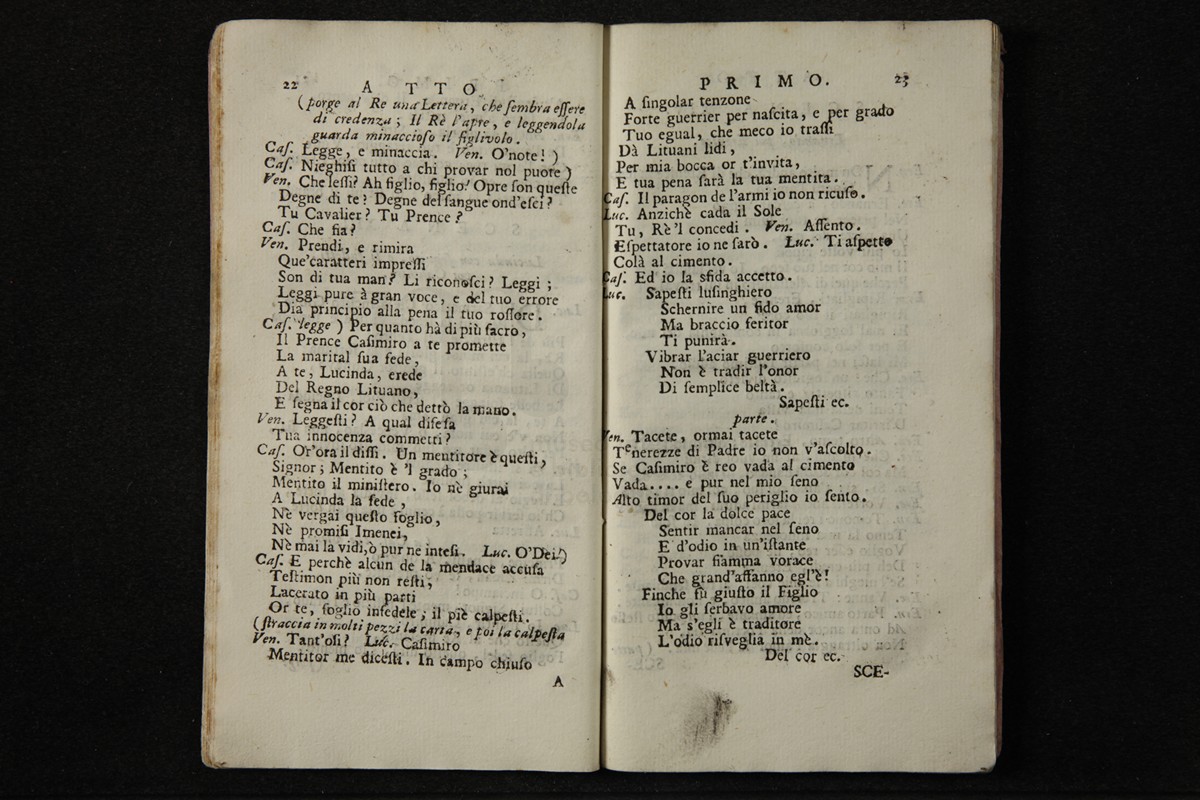 22 A T T O
(porge al Re una Lettera, che ſembra eſſere
di credenza; Il Rè l'apre, e leggendola
guarda minaccioſo il figlivolo.
Caſ. Legge, e minaccia. Ven. O'note! )
Caſ. Nieghiſi tutto a chi provar nol puote)
Ven. Che leſſi? Ah figlio, figlio! Opre ſon queſte
Degne di te? Degne del ſangue ond'eſci?
Tu Cavalier? Tu Prence?
Caſ. Che fia?
Ven. Prendi, e rimira
Que'caratteri impreſſi
Son di tua man? Li riconoſci? Leggi;
Leggi pure à gran voce, e del tuo errore
Dia principio alla pena il tuo roſſore.
Caſ. legge ) Per quanto hà di più ſacro,
Il Prence Caſimiro a te promette
La marital ſua fede,
A te, Lucinda, erede
Del Regno Lituano,
E ſegna il cor ciò che dettò la mano.
Ven. Leggeſti? A qual difeſa
Tua innocenza commetti?
Caſ. Or'ora il diſſi. Un mentitore è queſti,
Signor; Mentito è 'l grado;
Mentito il miniſtero. Io nè giurai
A Lucinda la fede,
Nè vergai queſto foglio,
Nè promiſi Imenei,
Nè mai la vidi, ò pur ne inteſi. Luc. O'Dei!)
Caſ. E perchè alcun de la mendace accuſa
Teſtimon più non reſti,
Lacerato in più parti
Or te, foglio infedele; il piè calpeſti.
(ſtraccia in molti pezzi la carta, e poi la calpeſta
Ven. Tant'oſi? Luc. Caſimiro
Mentitor me diceſti. In campo chiuſo
A
P R I M O. 23
A ſingolar tenzone
Forte guerrier per naſcita, e per grado
Tuo egual, che meco io traſſi
Dà Lituani lidi,
Per mia bocca or t'invita,
E tua pena ſarà la tua mentita.
Caſ. Il paragon de l'armi io non ricuſo.
Luc. Anzichè cada il Sole
Tu, Rè 'l concedi. Ven. Aſſento.
Eſpettatore io ne ſarò. Luc. Ti aſpetto
Colà al cimento.
Caſ. Ed io la sfida accetto.
Luc. Sapeſti luſinghiero
Schernire un fido amor
Ma braccio feritor
Ti punirà.
Vibrar l'aciar guerriero
Non è tradir l'onor
Di ſemplice beltà.
Sapeſti ec.
parte.
Ven. Tacete, ormai tacete
Tenerezze di Padre io non v'aſcolto.
Se Caſimiro è reo vada al cimento
Vada.... e pur nel mio ſeno
Alto timor del ſuo periglio io ſento.
Del cor la dolce pace
Sentir mancar nel ſeno
E d'odio in un'iſtante
Provar fiamma vorace
Che grand'affanno egl'è!
Finche fù giuſto il Figlio
Io gli ſerbavo amore
Ma s'egli è traditore
L'odio riſveglia in mè.
Del cor ec.
SCE-